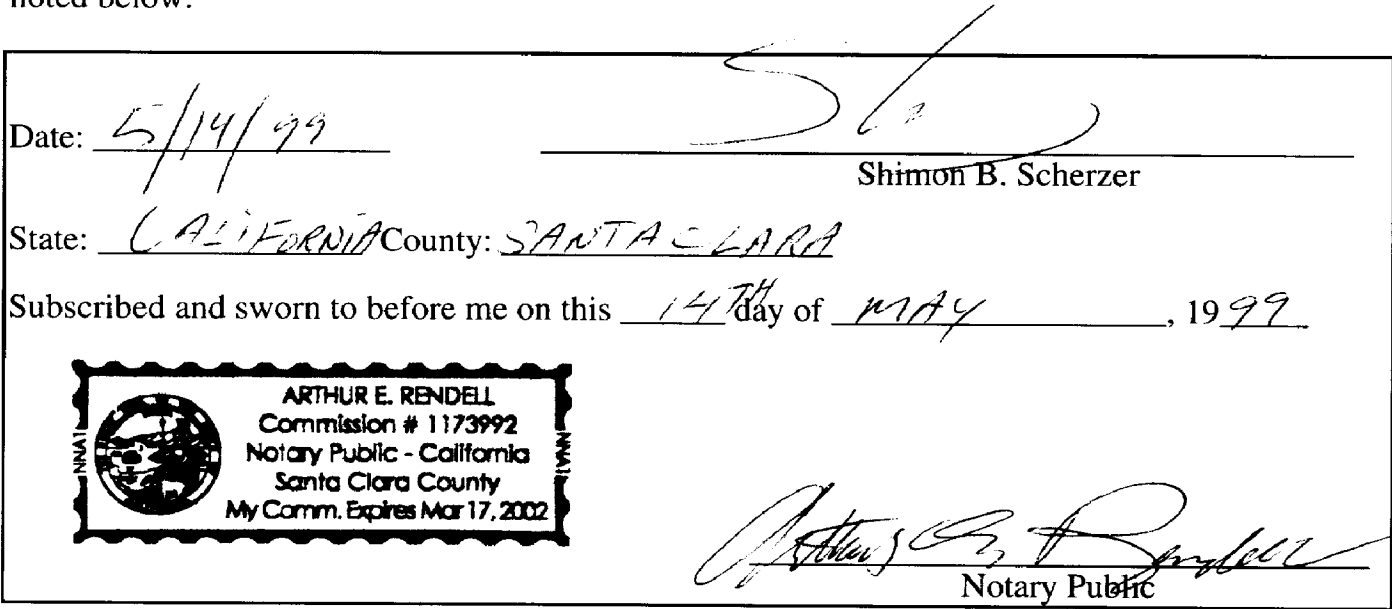 noted below.
Date: 5/14/99
Shimon B. Scherzer
State: CALIFORNIA County: SANTA CLARA
Subscribed and sworn to before me on this 14TH day of MAY, 1999
ARTHUR E. RENDELL
Commission # 1173992
Notary Public - California
Santa Clara County
My Comm. Expires Mar 17, 2002
NNA1
NNA1
Arthur E. Rendell
Notary Public